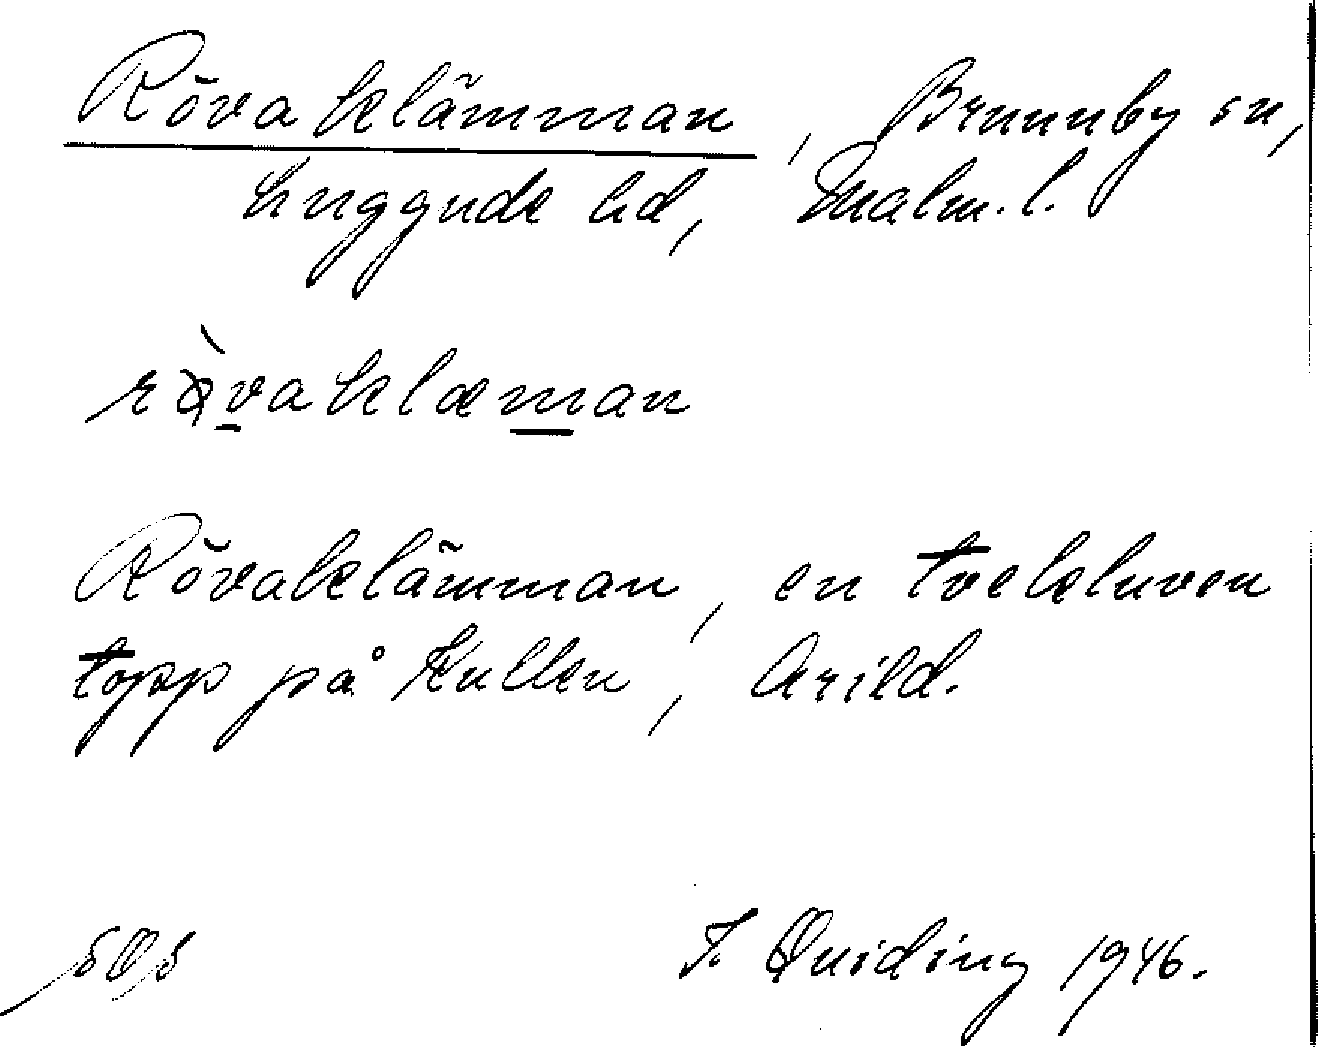 Rövaklämman, Brunnby sn,
Luggude hd, Malm. l.
rövaklæman
Rövaklämman, en tvekluven
topp på Kullen, Arild.
SOS J. Quiding 1946.